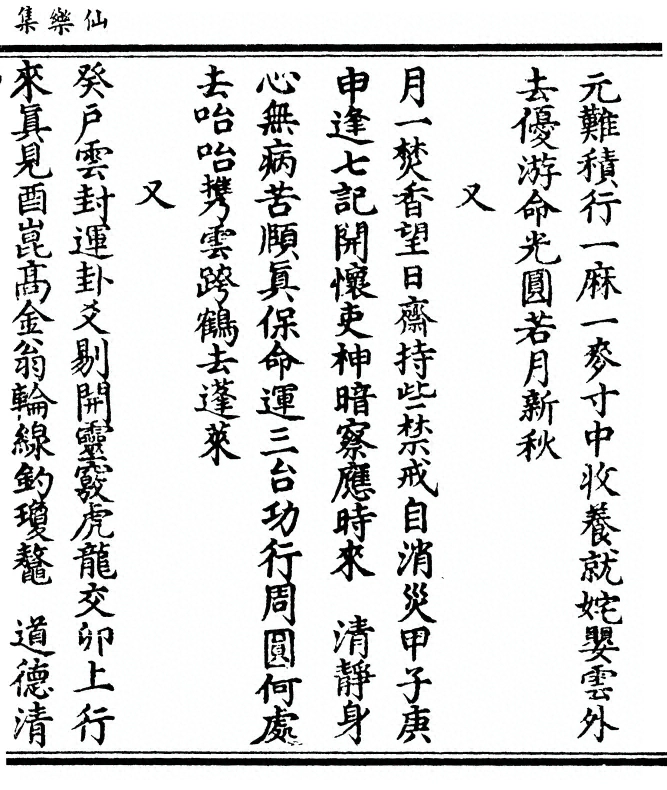 仙樂集
元難積行一麻一麥寸中收養就姹嬰雲外
去優游命光圓若月新秋
又
月一焚香望日齋持些禁戒自消災甲子庚
申逢七記開懷吏神暗察應時來　清靜身
心無病苦願眞保命運三台功行周圓何處
去咍咍携雲跨鶴去蓬萊
又
癸戶雲封運卦爻剔開靈竅虎龍交卯上行
來眞見酉崑高金翁輪線釣瓊鼇　道德清